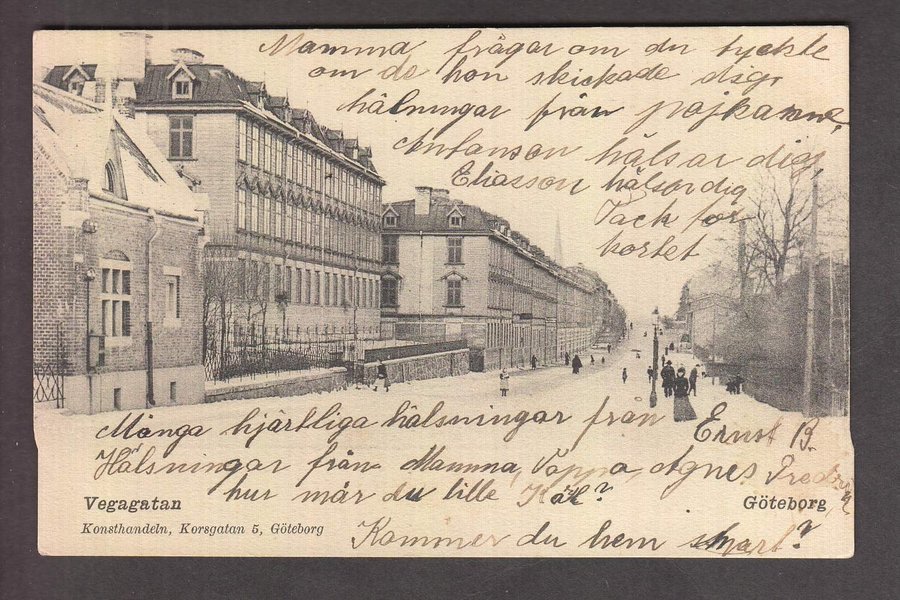 Mamma frågar om du tyckte
om de hon skickade dig,
hälningar från pojkarne,
Antonson hälsar dig,
Eliasson hälsar dig
Tack för
kortet
Många hjärtliga hälsningar från Ernst B.
Hälsningar från Mamma, Pappa, Agnes
hur mår du lille
Vegagatan
Göteborg
Konsthandeln, Korsgatan 5, Göteborg
Kommer du hem snart?